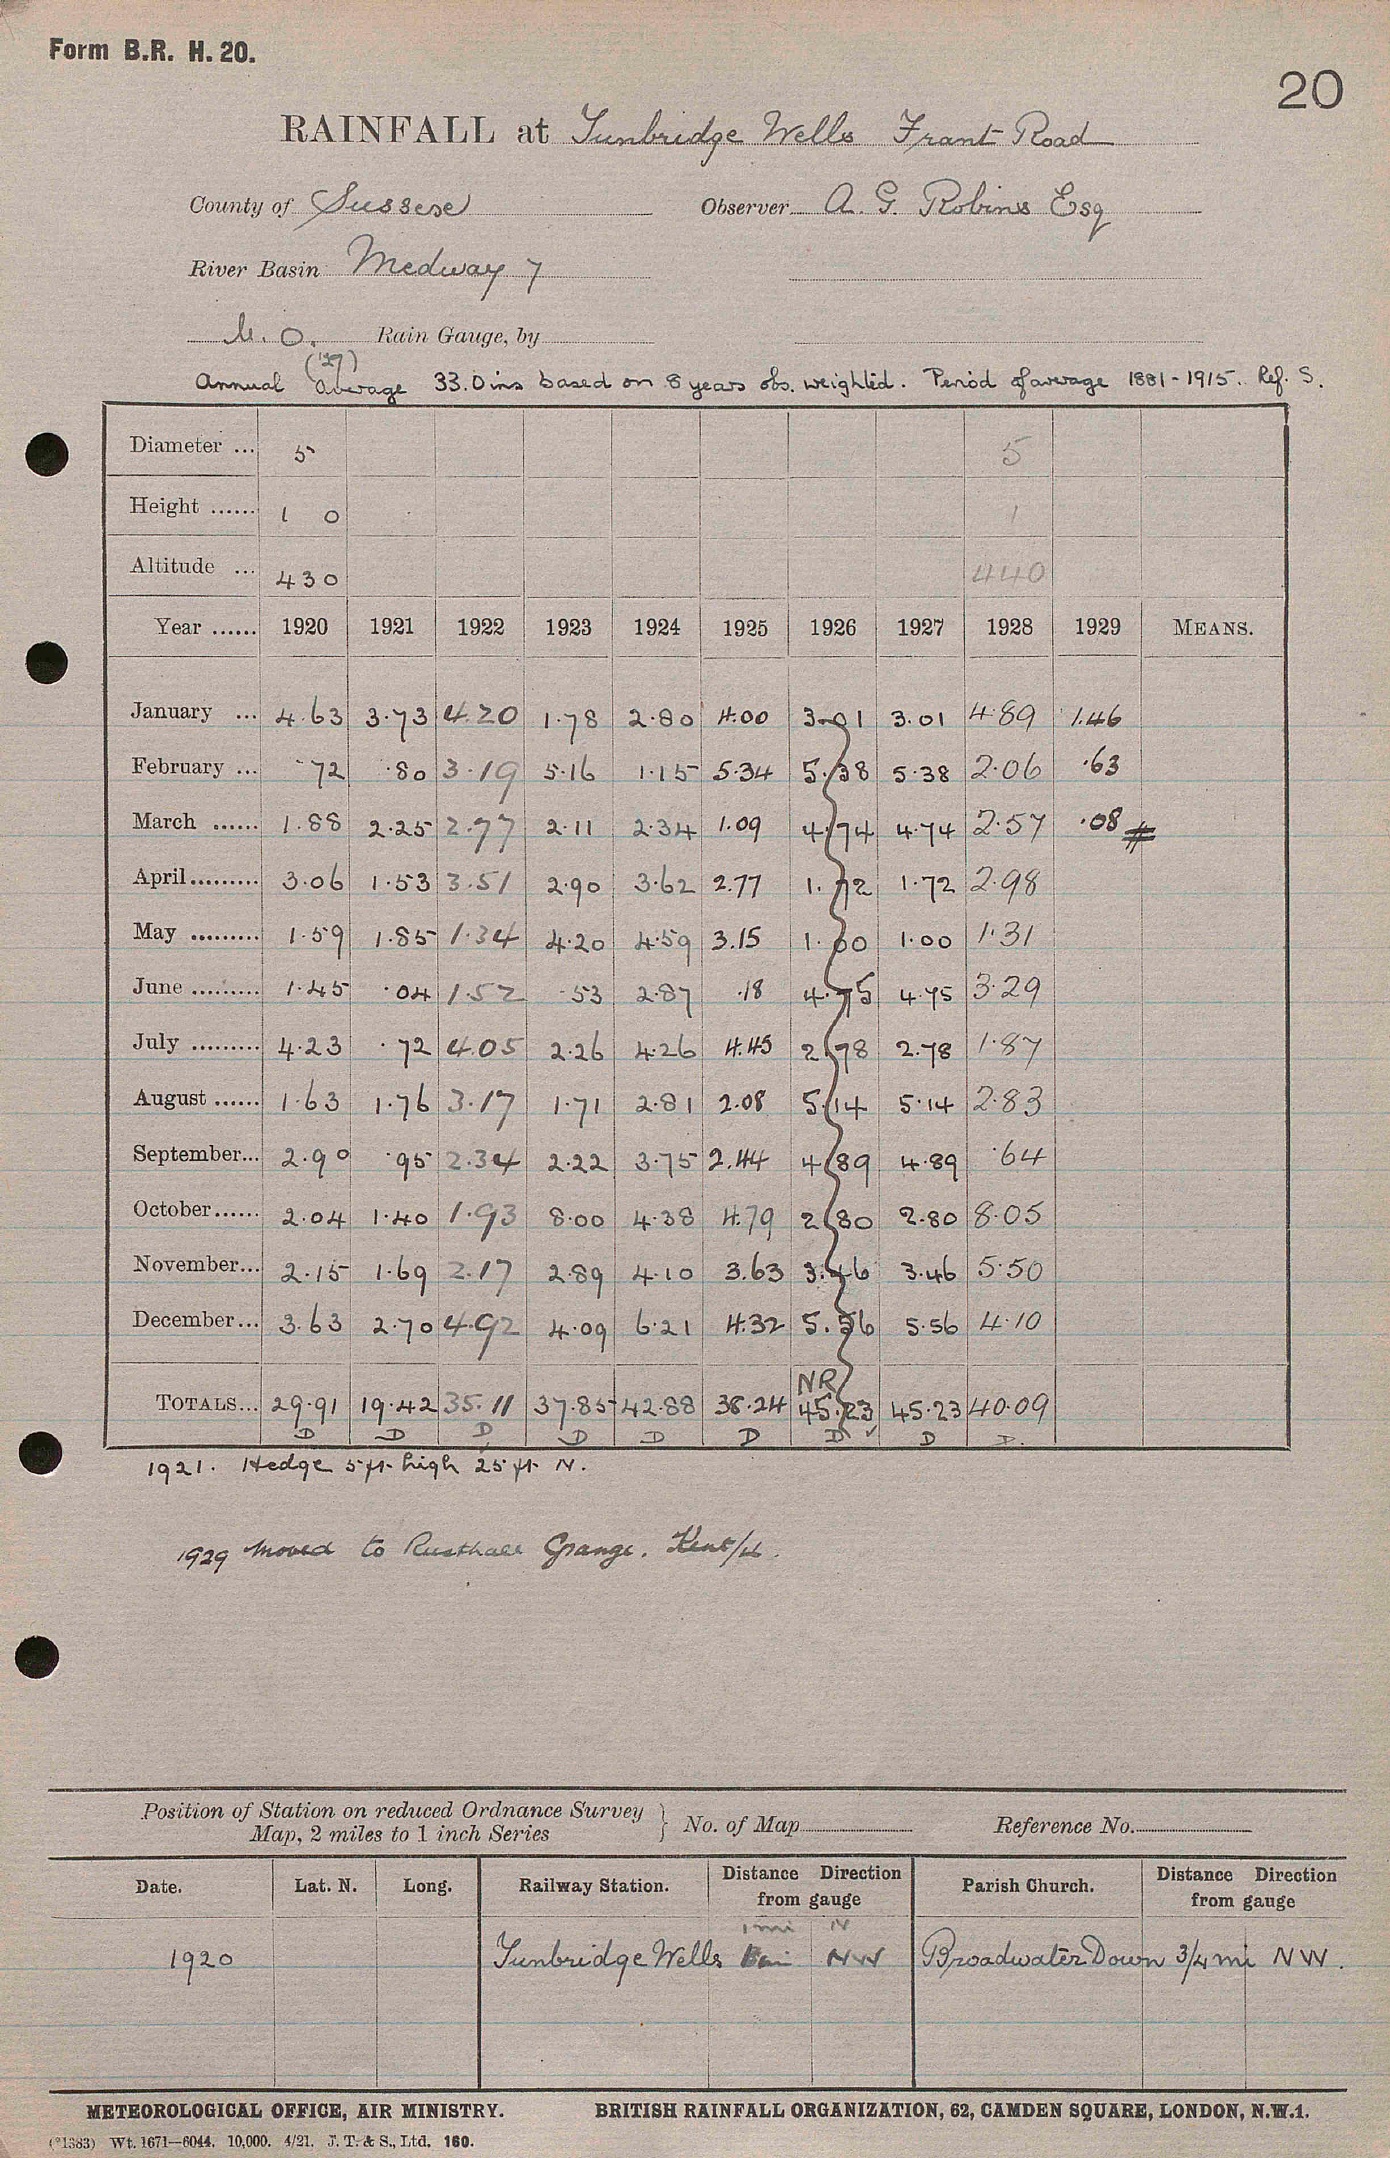 Form B.R. H. 20.
20
RAINFALL at Tunbridge Wells Frant Road
County of Sussex Observer A. G. Robins Esq
River Basin Medway 7
M. O. Rain Gauge, by
('27)
Annual average 33.0 ins based on 8 years obs. weighted. Period of average 1881-1915. Ref. S.
Diameter ... 5 5
Height ...... 1 0 1
Altitude ... 430 440
Year ...... 1920 1921 1922 1923 1924 1925 1926 1927 1928 1929 MEANS.
January ... 4.63 3.73 4.20 1.78 2.80 4.00 3.01 3.01 4.89 1.46
February ... .72 .80 3.19 5.16 1.15 5.34 5.38 5.38 2.06 .63
March ...... 1.88 2.25 2.77 2.11 2.34 1.09 4.74 4.74 2.57 .08 #
April ......... 3.06 1.53 3.51 2.90 3.62 2.77 1.72 1.72 2.98
May ......... 1.59 1.85 1.34 4.20 4.59 3.15 1.00 1.00 1.31
June ......... 1.45 .04 1.52 .53 2.87 .18 4.75 4.75 3.29
July ......... 4.23 .72 4.05 2.26 4.26 4.45 2.78 2.78 1.87
August ...... 1.63 1.76 3.17 1.71 2.81 2.08 5.14 5.14 2.83
September... 2.90 .95 2.34 2.22 3.75 2.44 4.89 4.89 .64
October...... 2.04 1.40 1.93 8.00 4.38 4.79 2.80 2.80 8.05
November... 2.15 1.69 2.17 2.89 4.10 3.63 3.46 3.46 5.50
December... 3.63 2.70 4.92 4.09 6.21 4.32 5.56 5.56 4.10
NR
TOTALS... 29.91 19.42 35.11 37.85 42.88 38.24 45.23 45.23 40.09
D D D D D D D ✓ D D.
1921. Hedge 5 ft. high 25 ft N.
1929 moved to Rusthall Grange. Kent/4.
Position of Station on reduced Ordnance Survey
Map, 2 miles to 1 inch Series } No. of Map Reference No.
Date. Lat. N. Long. Railway Station. Distance Direction from gauge Parish Church. Distance Direction from gauge
1 mi N
1920 Tunbridge Wells NW Broadwater Down 3/4 mi NW.
METEOROLOGICAL OFFICE, AIR MINISTRY. BRITISH RAINFALL ORGANIZATION, 62, CAMDEN SQUARE, LONDON, N.W.1.
(*1383) Wt. 1671—6044. 10,000. 4/21. J. T. & S., Ltd. 160.